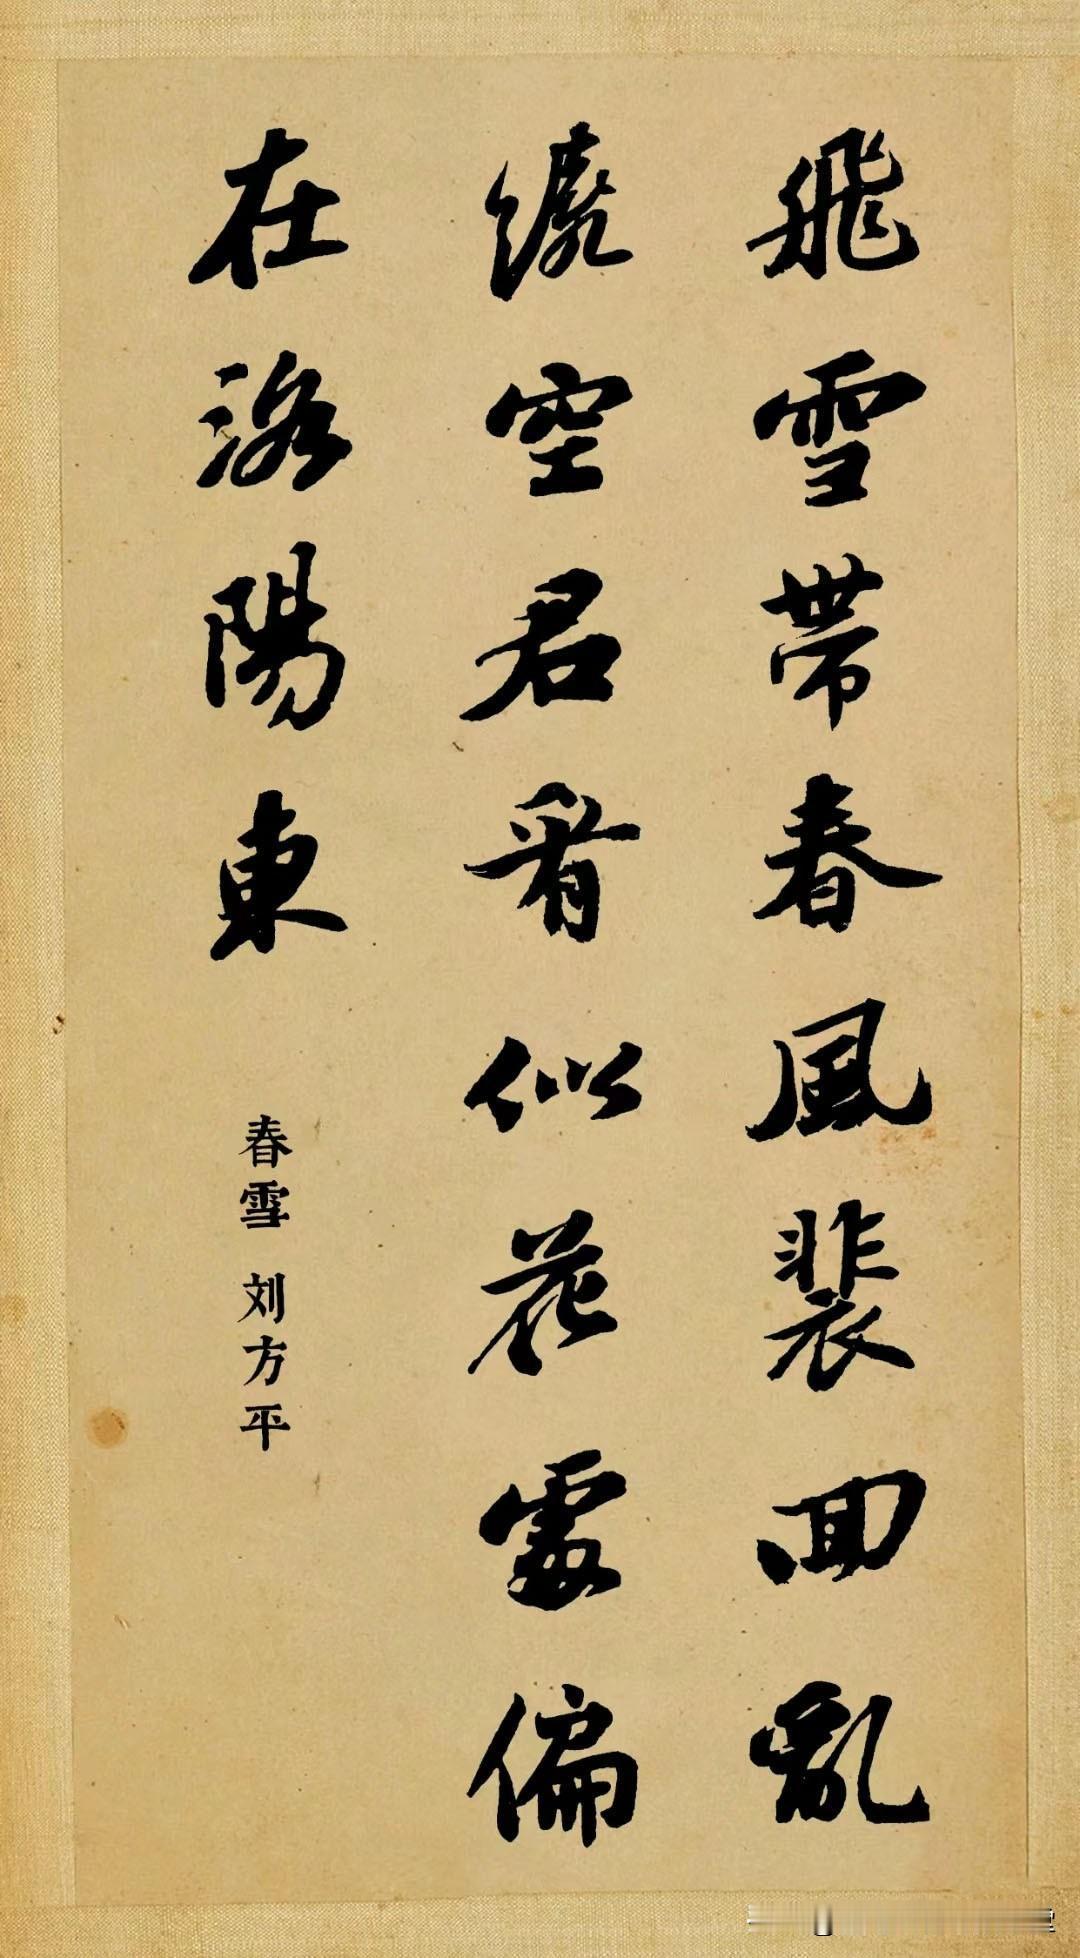 飛雪帶春風裴回亂
繞空君看似花處偏
在洛陽東
春雪 刘方平